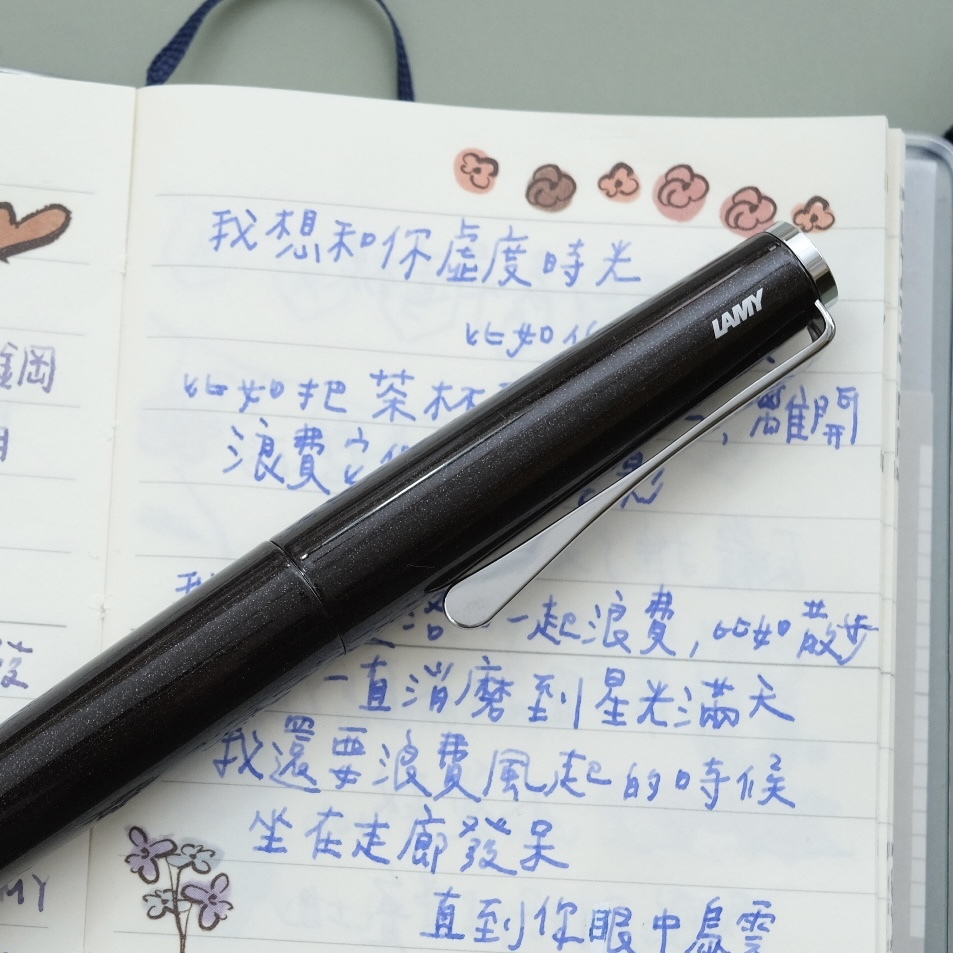 鋼
發
MY
我想和你虛度時光
比如
比如把茶杯
離開
浪費它
影
我
一起浪費，比如散步
一直消磨到星光滿天
我還要浪費風起的時候
坐在走廊發呆
直到你眼中烏雲
LAMY